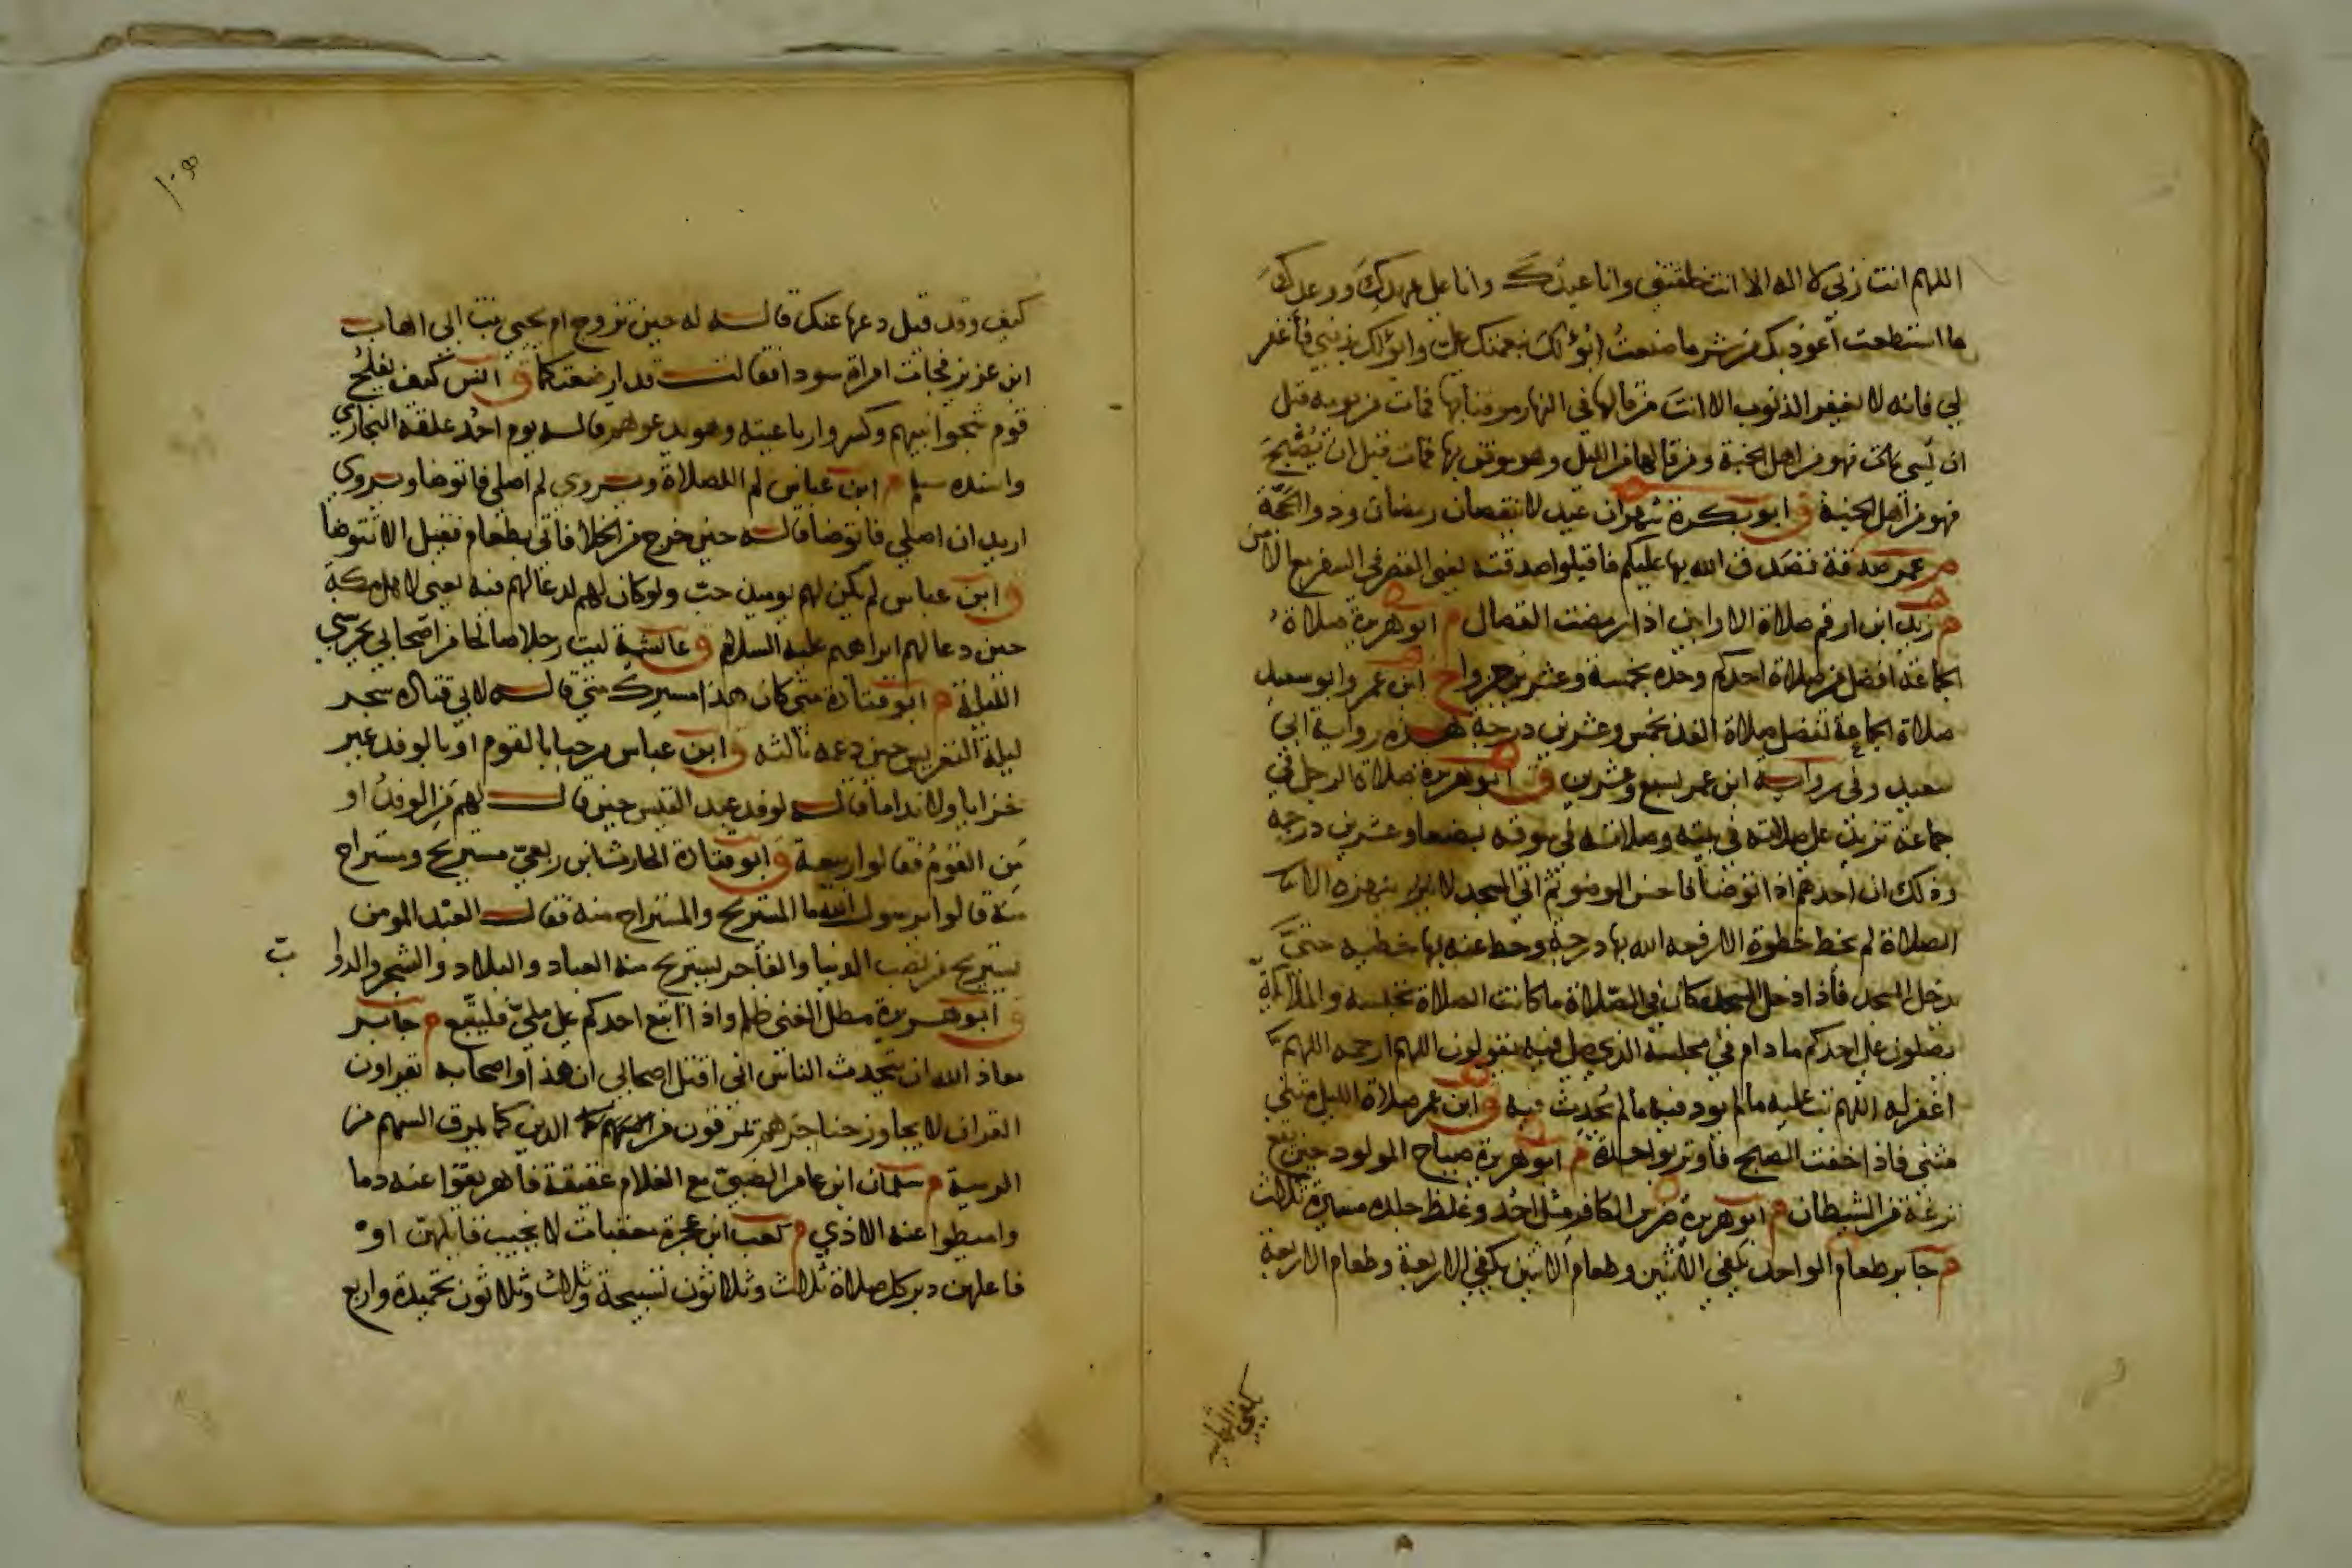 اللهم انت ربي لا اله الا انت خلقتني وانا عبدك وانا على عهدك ووعدك
ما استطعت أعوذ بك من شر ما صنعت ابوٴ لك بنعمتك علي وابوٴ لك بذنبي فأغفر
لي فانه لا يغفر الذنوب الا انت من قالها في النهار موقنا بها فمات من يومه قبل
ان يمسي فهو من اهل الجنة ومن قالها من الليل وهو موقن بها فمات قبل ان يُصْبِحَ
فهو من اهل الجنة ق ابو بكرة شهران عيد لا ينقصان رمضان وذو الحجّة
م عمر صدقة تصدق الله بها عليكم فاقبلوا صدقته يعني القصر في السفر مع الأمن
م زيد ابن ارقم صلاة الاوابين اذا رمضت الفصال م ابو هريرة صلاة
الجماعة افضل من صلاة احدكم وحده بخمسة وعشرين جزوا خ ابن عمر وابو سعيد
صلاة الجماعة تفضل صلاة الفذ بخمس وعشرين درجة هذه رواية ابي
سعيد وفي رواية ابن عمر بسبع وعشرين ق ابو هريرة صلاة الرجل في
جماعة تزيد على صلاته في بيته وصلاته في سوقه بضعا وعشرين درجة
وذلك ان احدهم اذا توضأ فاحسن الوضوء ثم اتى المسجد لا
الصلاة لم يخط خطوة الا رفعه الله بها درجة وحط عنه بها خطية حتىّ
يدخل المسجد فأذا دخل المسجد كان في الصّلاة ما كانت الصلاة تحبسه والملائكة
يصلون على احدكم ما دام في مجلسه الذي صلى فيه يقولون اللهم ارحمه اللهم
اغفر له اللهم تب عليه ما لم يوذ فيه ما لم يُحدِث فيه ق ابن عمر صلاة الليل مثنى
مثنى فاذا خفت الصبح فاوتر بواحدة م ابو هريرة صياح المولود حين يقع
نزغة من الشيطان م ابو هريرة ضرس الكافر مثل احُد وغلظ جلده مسيرة ثلاث
م جابر طعام الواحد يكفي الاثنين وطعام الاثنين يكفي الاربعة وطعام الاربعة
يكفي الثمانية
كيف وقد قيل دعها عنك قاله له حين تزوج ام يحيى بنت ابي اهاب
ابن عزيز فجات امراة سودا فقالت قد ارضعتكما ق انس كيف يفلحُ
قوم شجوا نبيهم وكسروا رباعيته وهو يدعوهم قاله يوم احُد علقه البخاري
واسنده مسلم م ابن عباس لم اللصلاة ويروي لم اصلي فاتوضا ويروي
اريد ان اصلي فاتوضا قاله حين خرج من الخلا فاتى بطعام فقيل الا تتوضا
ق ابن عباس لم يكن لهم يوميذ حبّ ولو كان لهم لدعا لهم فيه يعني لاهل مكة
حين دعا لهم ابراهيم عليه السلام ق عائشة ليت رجلا صالحا من اصحابي يحرسني
الليلة م ابو قتادة متى كان هذا مسيرك مني قاله لابي قتادة سحر
ليلة التعريس حين دعمه ثالثه ق ابن عباس مرحبا بالقوم او بالوفد غير
خزايا ولا نداما قاله لوفد عبد القيس حين قال لهم من الوفدُ او
مَن القومُ فقالوا ربيعة ق ابو قتادة الحارث ابن ربعيّ مستريح ومستراح
منه قالوا يرسول الله ما المستريح والمستراح منه فقال العبْد المومن
يستريح من نصب الدنيا والفاجر يستريح منه العباد والبلاد والشجر والدوا
بّ
ق ابو هريرة مطل الغني ظلم واذا اتبع احدكم على مليّ فليتّبع م جابر
معاذ الله ان يتحدث الناس اني اقتل اصحابي ان هذا واصحابه يقراون
القران لا يجاوز حناجرهم يمرقون من الدين كما يمرق السهم من
الرمية م سلمان ابن عامر الضبيّ مع الغلام عقيقة فاهريقوا عنه دما
واميطوا عنه الاذي م كعب ابن عجرة معقبات لا يخيب قايلهنّ او
فاعلهن دبر كل صلاة ثلاث وثلاثون تسبيحة وثلاث وثلاثون تحميدة واربع